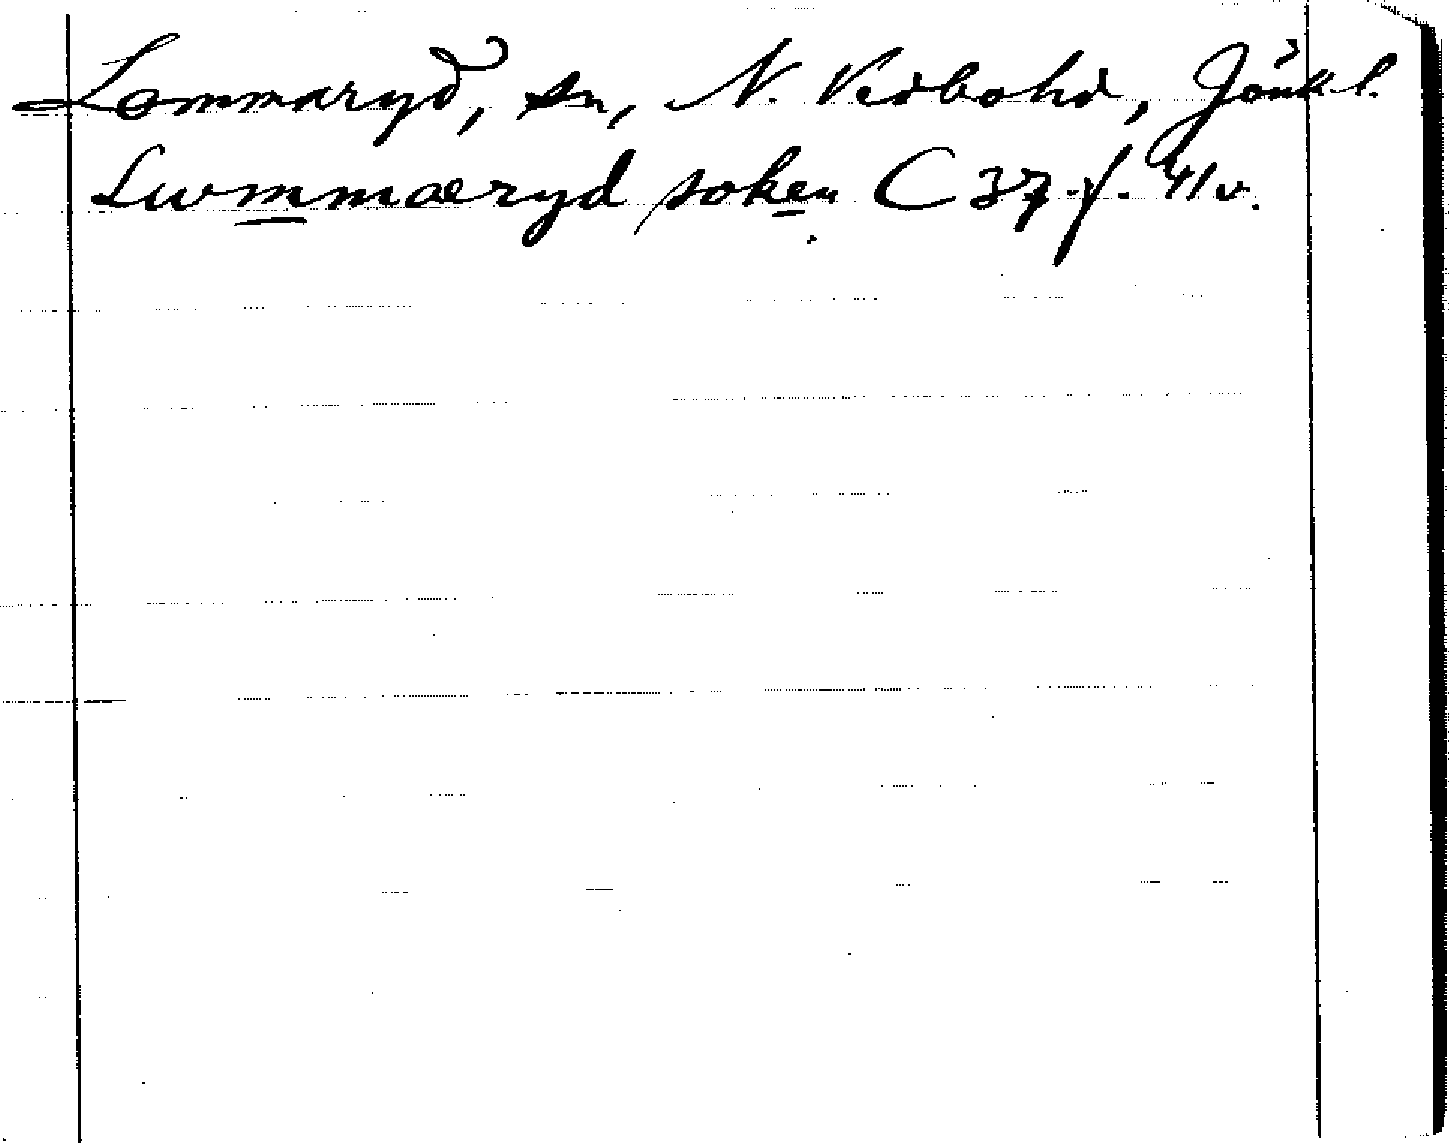 Lommaryd, sn, N. Vedbohd, Jönk. l.
Lwmmæryd soken C 37 f. 41v.